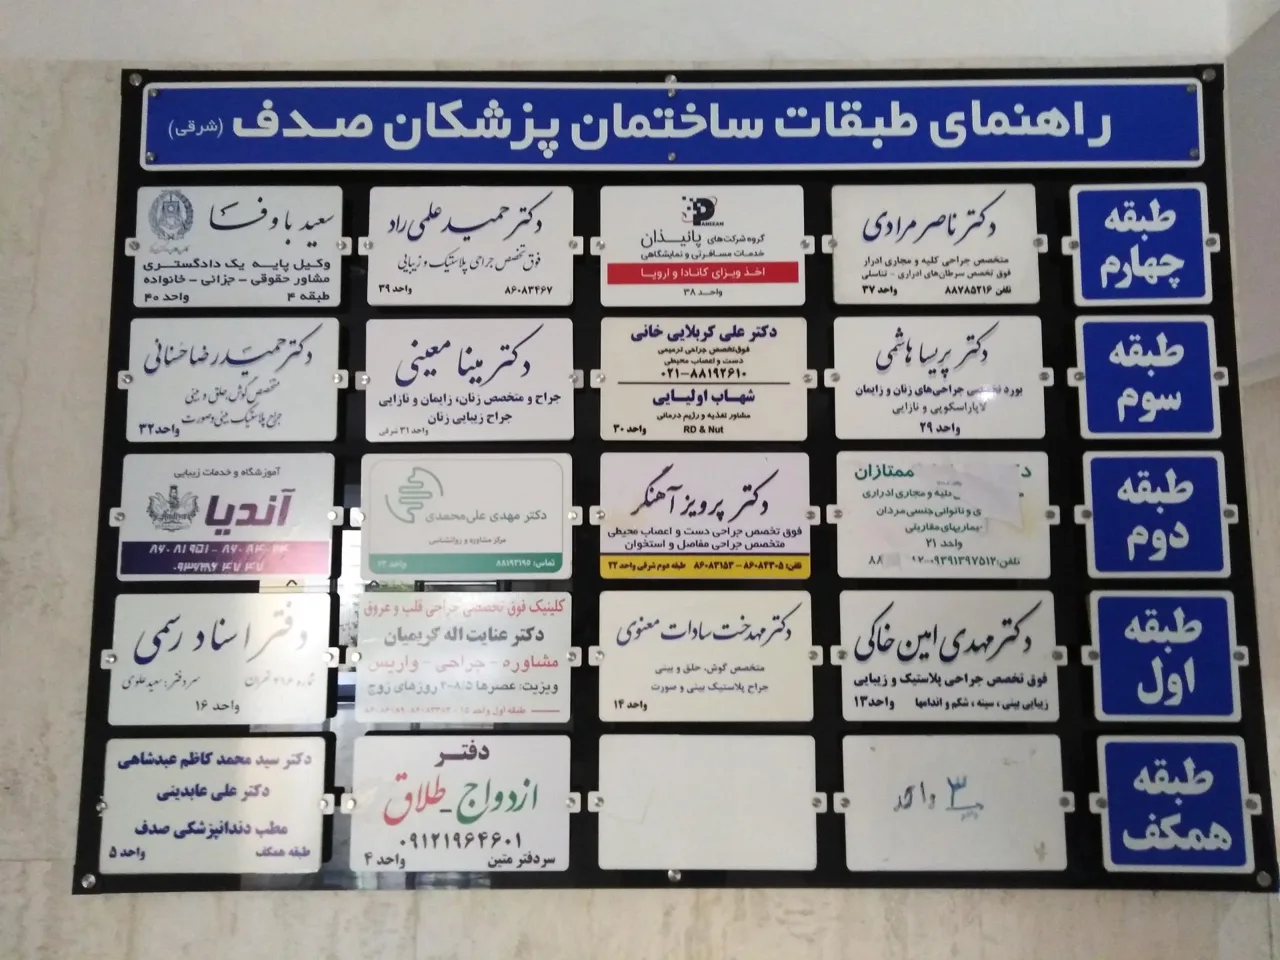 راهنمای طبقات ساختمان پزشکان صدف (شرقی)
طبقه
چهارم
دکتر ناصر مرادی
متخصص جراحی کلیه و مجاری ادرار
فوق تخصص سرطان‌های ادراری - تناسلی
تلفن ۸۸۷۸۵۲۱۶ واحد ۳۷
PANIZAN
گروه شرکت‌های پانیذان
خدمات مسافرتی و نمایشگاهی
اخذ ویزای کانادا و اروپا
واحد ۳۸
دکتر حمید علمی راد
فوق تخصص جراحی پلاستیک و زیبایی
۸۶۰۸۳۴۶۷ واحد ۳۹
سعید باوفا
وکیل پایه یک دادگستری
مشاور حقوقی - جزائی - خانواده
طبقه ۴ واحد ۴۰
طبقه
سوم
دکتر پریسا هاشمی
بورد تخصصی جراحی‌های زنان و زایمان
لاپاراسکوپی و نازایی
واحد ۲۹
دکتر علی کربلایی خانی
فوق‌تخصص جراحی ترمیمی
دست و اعصاب محیطی
۰۲۱-۸۸۱۹۲۶۱۰
شهاب اولیایی
مشاور تغذیه و رژیم درمانی
RD & Nut واحد ۳۰
دکتر مینا معینی
جراح و متخصص زنان، زایمان و نازایی
جراح زیبایی زنان
واحد ۳۱ شرقی
دکتر حمید رضا حسنانی
متخصص گوش، حلق و بینی
جراح پلاستیک بینی و صورت
واحد ۳۲
طبقه
دوم
ممتازان
کلیه و مجاری ادراری
ی و ناتوانی جنسی مردان
بیماریهای مقاربتی
واحد ۲۱
تلفن: ۰۹۳۹۱۳۹۷۵۱۲
دکتر پرویز آهنگر
فوق تخصص جراحی دست و اعصاب محیطی
متخصص جراحی مفاصل و استخوان
تلفن: ۸۶۰۸۴۳۰۵ - ۸۶۰۸۳۱۵۳ طبقه دوم شرقی واحد ۲۲
دکتر مهدی علی‌محمدی
مرکز مشاوره و روانشناسی
تماس: ۸۸۱۹۳۱۹۵ واحد ۲۳
آموزشگاه و خدمات زیبایی
آندیا
طبقه
اول
دکتر مهدی امین خاکی
فوق تخصص جراحی پلاستیک و زیبایی
زیبایی بینی ، سینه ، شکم و اندامها واحد ۱۳
دکتر مهدخت سادات معنوی
متخصص گوش، حلق و بینی
جراح پلاستیک بینی و صورت
واحد ۱۴
کلینیک فوق تخصصی جراحی قلب و عروق
دکتر عنایت اله کریمیان
مشاوره - جراحی - واریس
ویزیت: عصرها ۸/۵-۴ روزهای زوج
طبقه اول واحد ۱۵
دفتر اسناد رسمی
شماره ۲۹۶ تهران سردفتر: سعید علوی
واحد ۱۶
طبقه
همکف
واحد ۳
دفتر
ازدواج - طلاق
۰۹۱۲۱۹۶۴۶۰۱
سردفتر متین واحد ۴
دکتر سید محمد کاظم عبدشاهی
دکتر علی عابدینی
مطب دندانپزشکی صدف
طبقه همکف واحد ۵